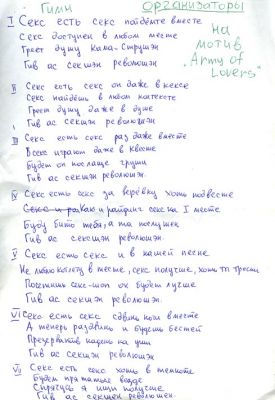 Гимн
Организаторы
На
мотив
„Army of
Lovers"
I Секс есть секс пойдёте вместе
Секс доступен в любом месте
Греет душу Кама-Сутра
Гив ас секшэн революшэн
II Секс есть секс он даже в кексе
Секс найдёшь в любом контексте
Греет душу даже в душе
Гив ас секшэн революшэн
III Секс есть секс раз даже вместе
В секс играют даже в квесте
Будет он послаще груши
Гив ас секшэн революшэн.
IV Секс есть секс за верёвку хоть подвесте
и рейтинг секс на I месте
Буду бить тебя, а ты послушен
Гив ас сексшэн революшэн.
V Секс есть секс и в нашей песне
Не люблю котлету в тесте, секс получше, хоть ты тресни
Посетишь секс-шоп он будет лучше
Гив ас секшэн революшэн.
VI Секс есть секс сдвинь ноги вместе
А теперь раздвинь и будешь бестией
Презерватив надень на уши
Гив ас секшэн революшэн
VII Секс есть секс хоть в темноте
Будем прятать везде
Спрячусь я ищи получше
Гив ас секшен революшен.